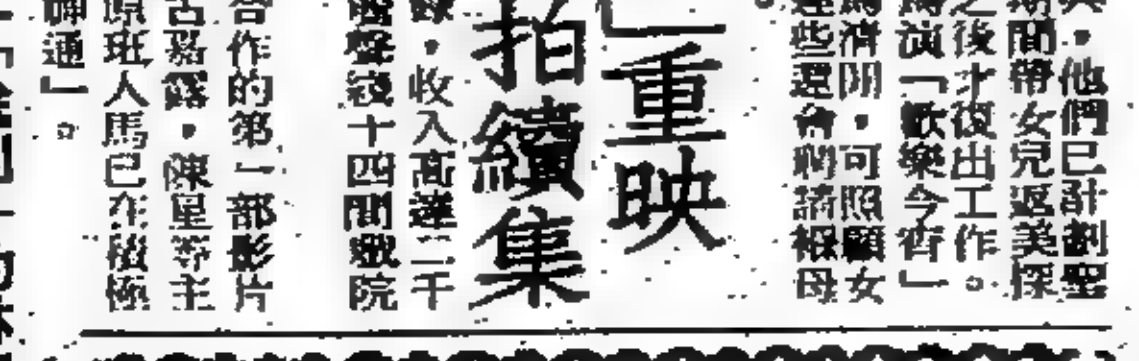 他們已計劃聖
期間帶女兒返美探
之後才復出工作。
演「歡樂今宵」
可照顧女
聘請褓母
重映
拍續集
收入高達二千
十四間戲院
合作的第一部影片
陳星等主
原班人馬已在積極
神通」。